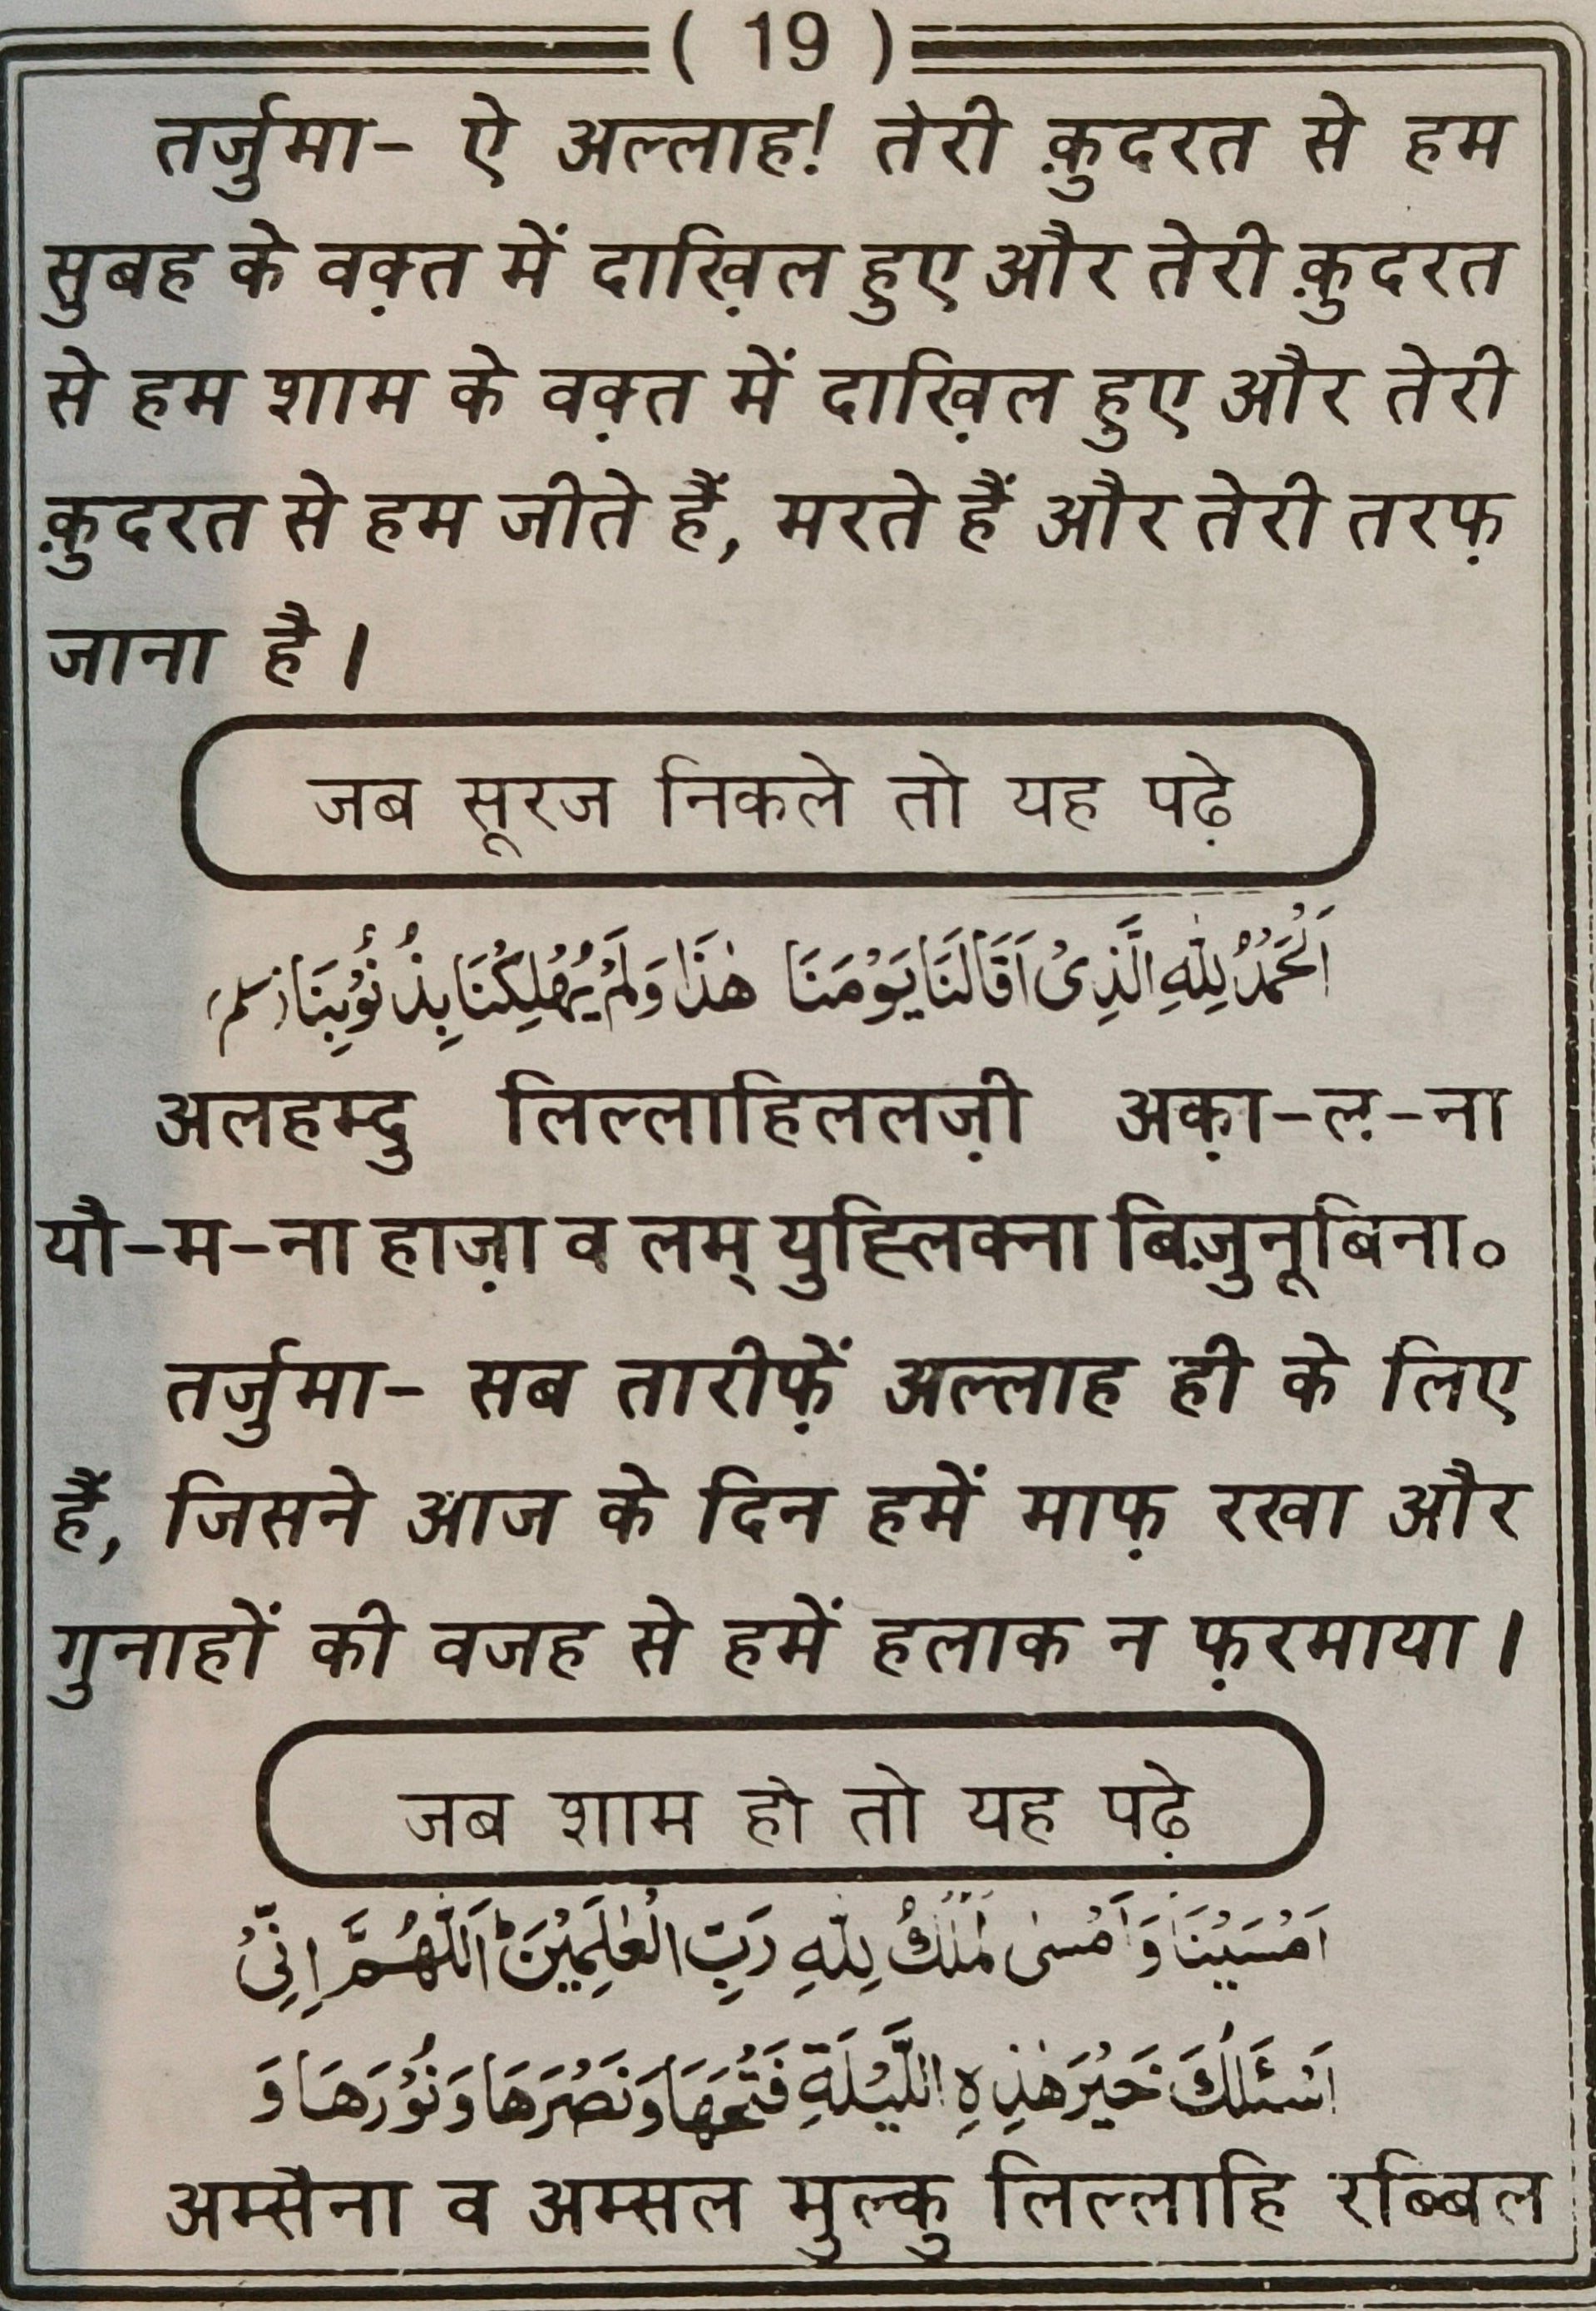 ( 19 )
तर्जुमा- ऐ अल्लाह! तेरी क़ुदरत से हम
सुबह के वक़्त में दाख़िल हुए और तेरी क़ुदरत
से हम शाम के वक़्त में दाख़िल हुए और तेरी
क़ुदरत से हम जीते हैं, मरते हैं और तेरी तरफ़
जाना है।
जब सूरज निकले तो यह पढ़े
اَلْحَمْدُ لِلّٰهِ الَّذِىْ اَقَالَنَا يَوْمَنَا هٰذَا وَلَمْ يُهْلِكْنَا بِذُنُوْبِنَا (مسلم)
अलहम्दु लिल्लाहिललज़ी अक़ा-ल़-ना
यौ-म-ना हाज़ा व लम् युह्लिक्ना बिज़ुनूबिना०
तर्जुमा- सब तारीफ़ें अल्लाह ही के लिए
हैं, जिसने आज के दिन हमें माफ़ रखा और
गुनाहों की वजह से हमें हलाक न फ़रमाया।
जब शाम हो तो यह पढ़े
اَمْسَيْنَا وَاَمْسَى الْمُلْكُ لِلّٰهِ رَبِّ الْعٰلَمِيْنَ ؕ اَللّٰهُمَّ اِنِّىْ
اَسْئَلُكَ خَيْرَ هٰذِهِ اللَّيْلَةِ فَتْحَهَا وَنَصْرَهَا وَنُوْرَهَا وَ
अम्सैना व अम्सल मुल्कु लिल्लाहि रब्बिल